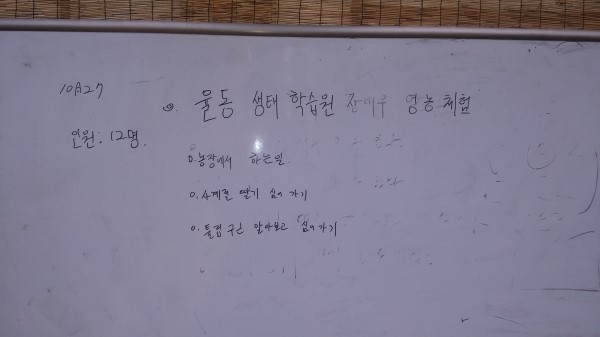 10月27
◎. 율동 생태 학습원 잔메루 영농 체험
인원: 12명.
0. 농장에서 하는일
0. 사계절 딸기 심어 가기
0. 튤립 구근 알아보고 심어가기